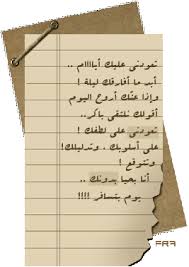 تعودنى عليك أياااام ..
أبد ما أفارقك ليلة !
وإذا عنّك أروح اليوم
أقولك نلتقى باكر..
تعودنى على لطفك !
على أسلوبك .. وتدليلك!
وتتوقع !
أنا بحيا بدونك ..
يوم بتسافر !!!!